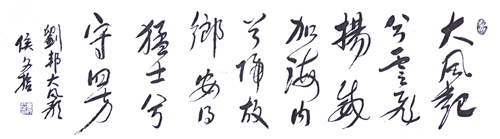 大風起
兮雲飛
揚威
加海内
兮歸故
鄉安得
猛士兮
守四方
劉邦大風歌